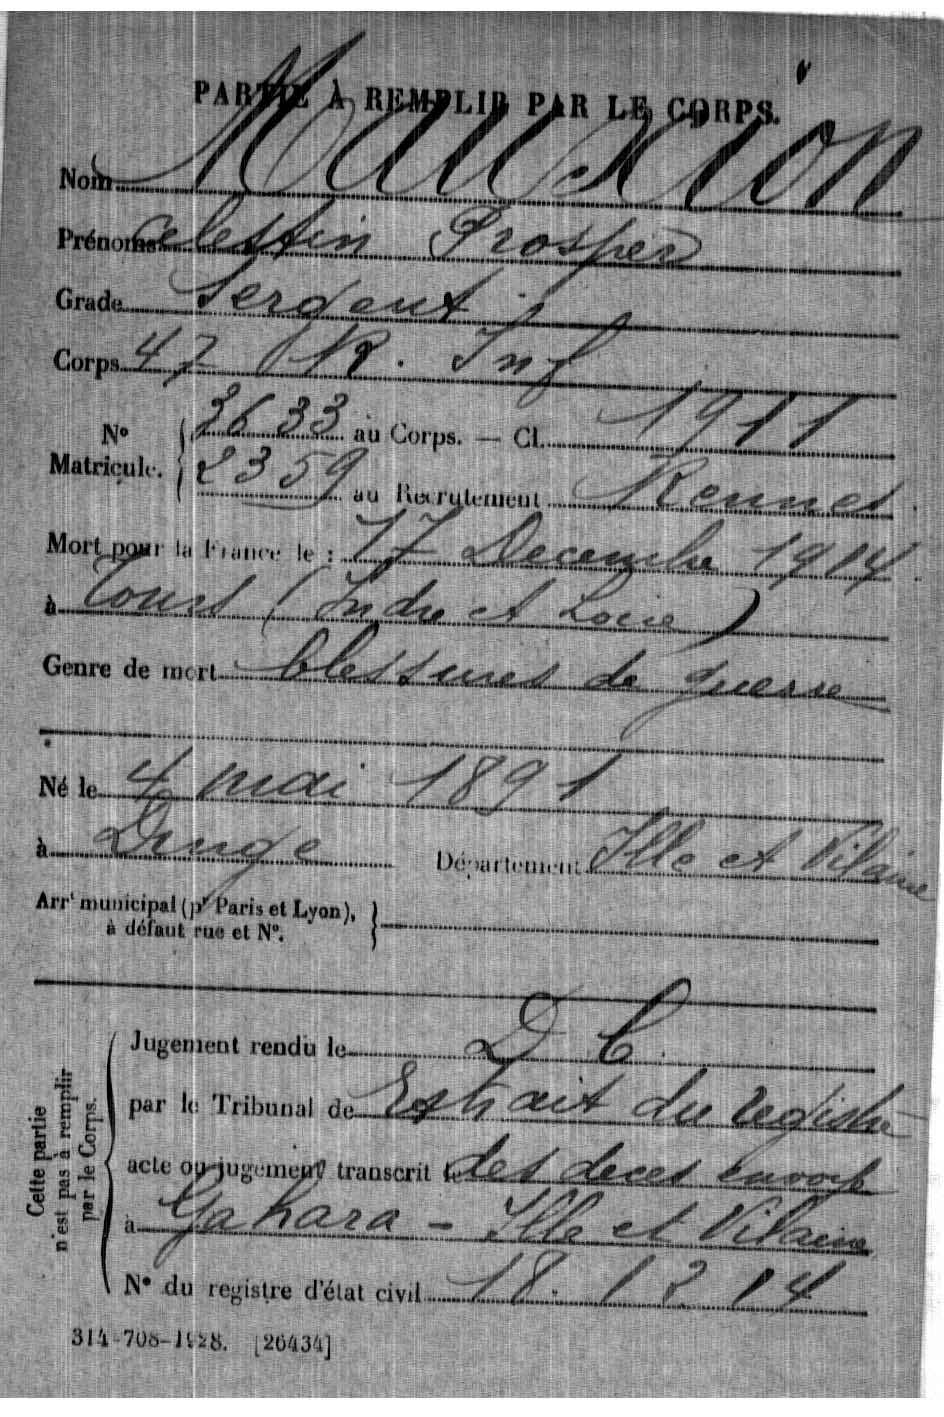 PARTIE À REMPLIR PAR LE CORPS.
Nom Mauxion
Prénoms Celestin Prosper
Grade Sergent
Corps 47 R. Inf
N° Matricule. { 3633 au Corps. — Cl. 1911
2359 au Recrutement Rennes
Mort pour la France le : 17 Decembre 1914
à Tours (Indre et Loire)
Genre de mort blessures de guerre
Né le 4 mai 1891
à Dingé Département Ille et Vilaine
Arrt municipal (pr Paris et Lyon),
à défaut rue et N°.
Cette partie
n'est pas à remplir
par le Corps.
Jugement rendu le D C
par le Tribunal de Extrait du registre
acte ou jugement transcrit le des deces envoyé
à Gahard - Ille et Vilaine
N° du registre d'état civil 18.12.14
314-708-1928. [26434]